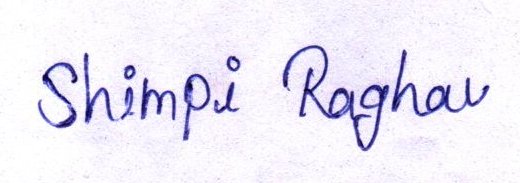 Shimpi Raghav